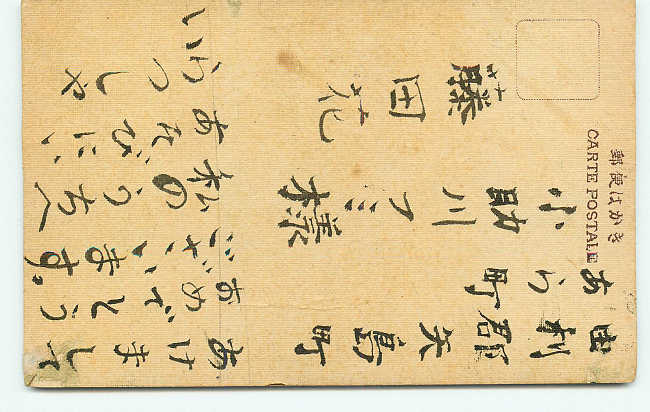 郵便はがき
CARTE POSTALE
由利郡矢島町
あら町
小助川フミ様
藤田花
あけまして
おめでとう
ございます。
私のうちへ
あそびに
いらつしや